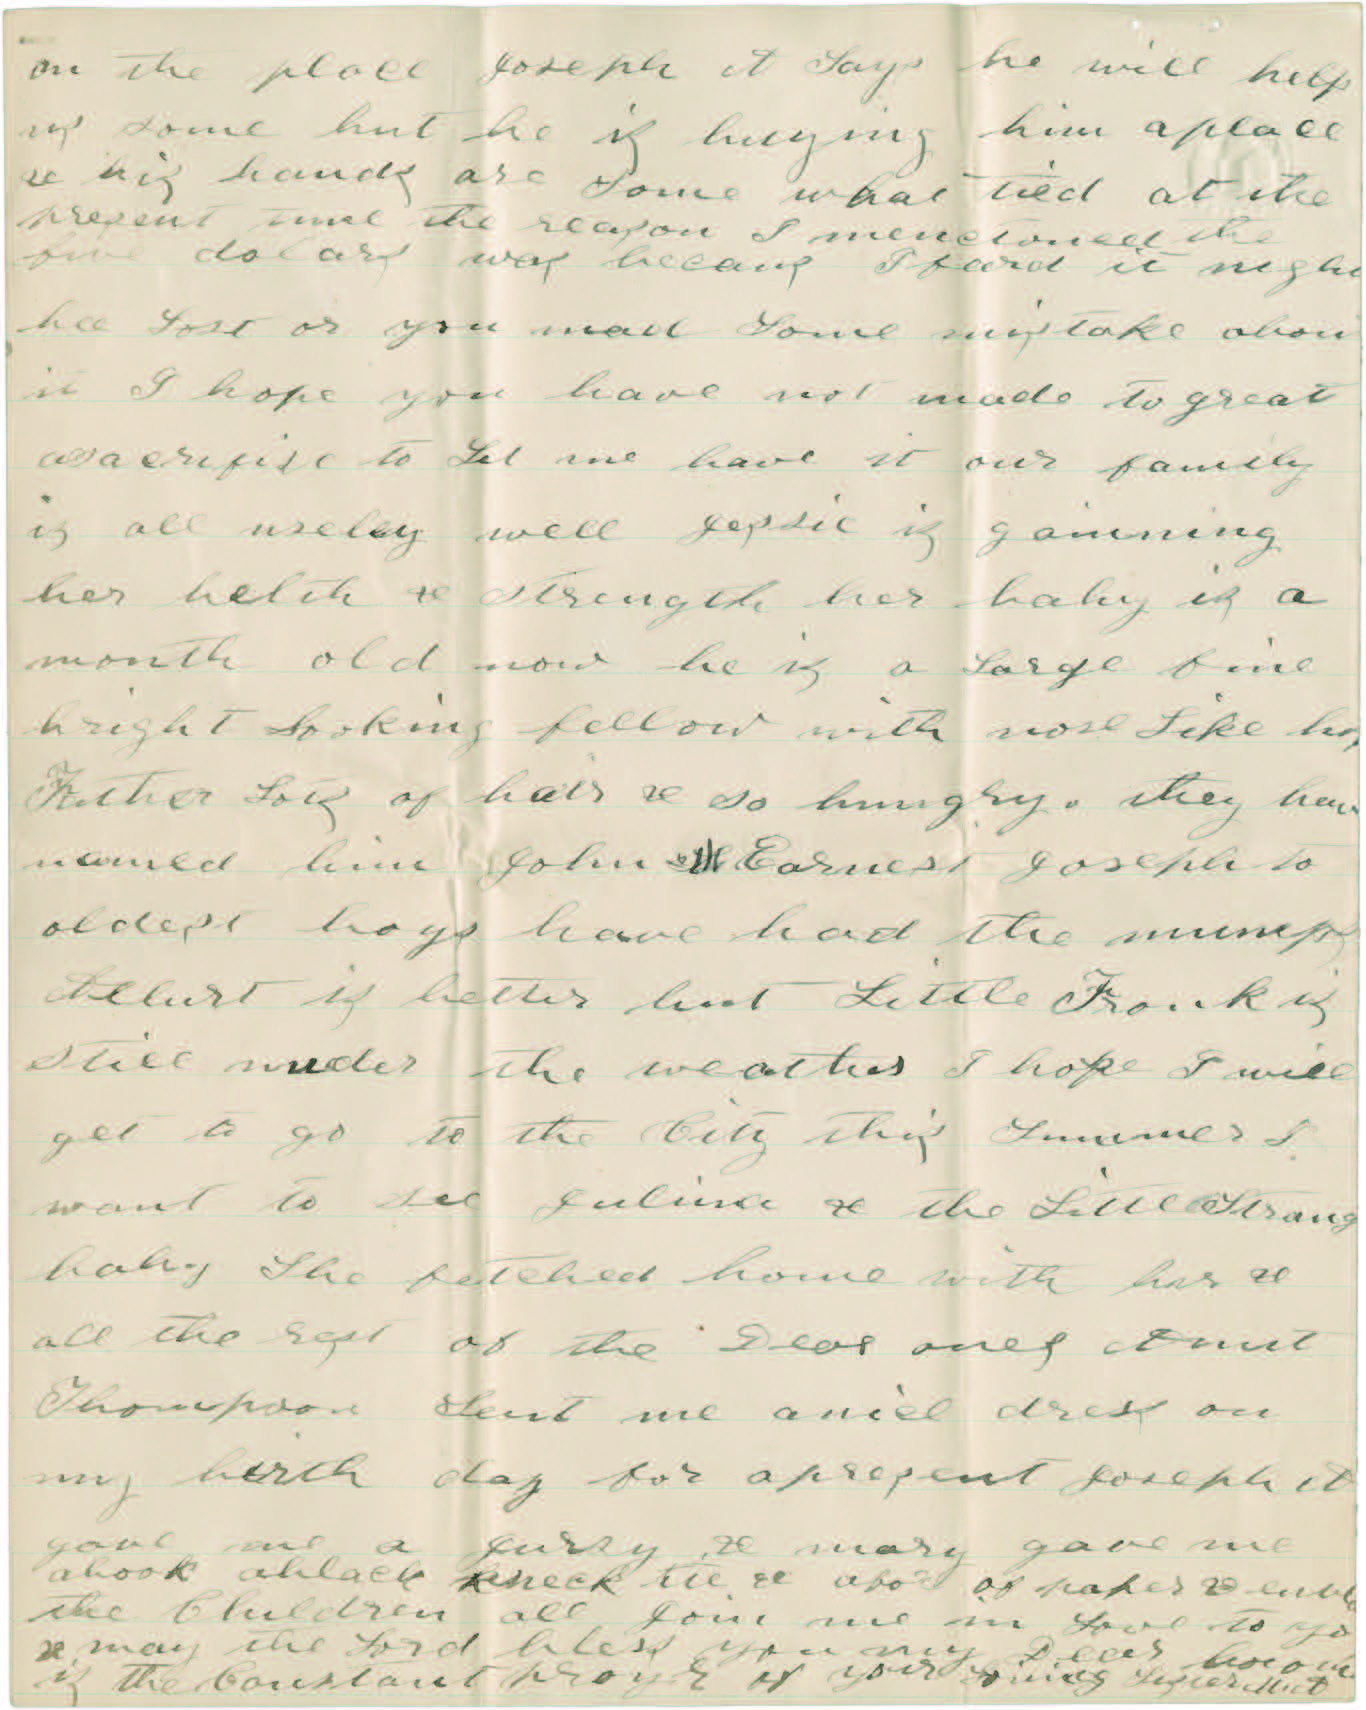 on the place Joseph it Says he will help
us some but he is buying him aplace
& his hands are Some what tied at the
present time the reason I menctoned the
five dolars was becaus I feard it migh
bee Lost or you mad Some mistake abou
it I hope you have not made to great
asacrifise to Let me have it our family
is all useley well Jessie is gainning
her helth & strength her baby is a
month old now he is a Large fine
bright Looking fellow with nose Like his
Father Lots of hair & so hungry. they hav
named him John Earnest Joseph to
oldest boys have had the mumps
Allurt is better but Little Frank is
still under the weather I hope I will
get to go to the City this Summer I
want to see Julina & the Little Strang
baby She fetched home with her &
all the rest of the Dear ones Aunt
Thompson Sent me anice dress on
my birth day for apresent Joseph it
gave me a Jursy & mary gave me
abook ablack neck tie & abox of paper & envl
the Children all Join me in Love to yo
& may the Lord bless you my Dear
is the Constant prayr of your Loving